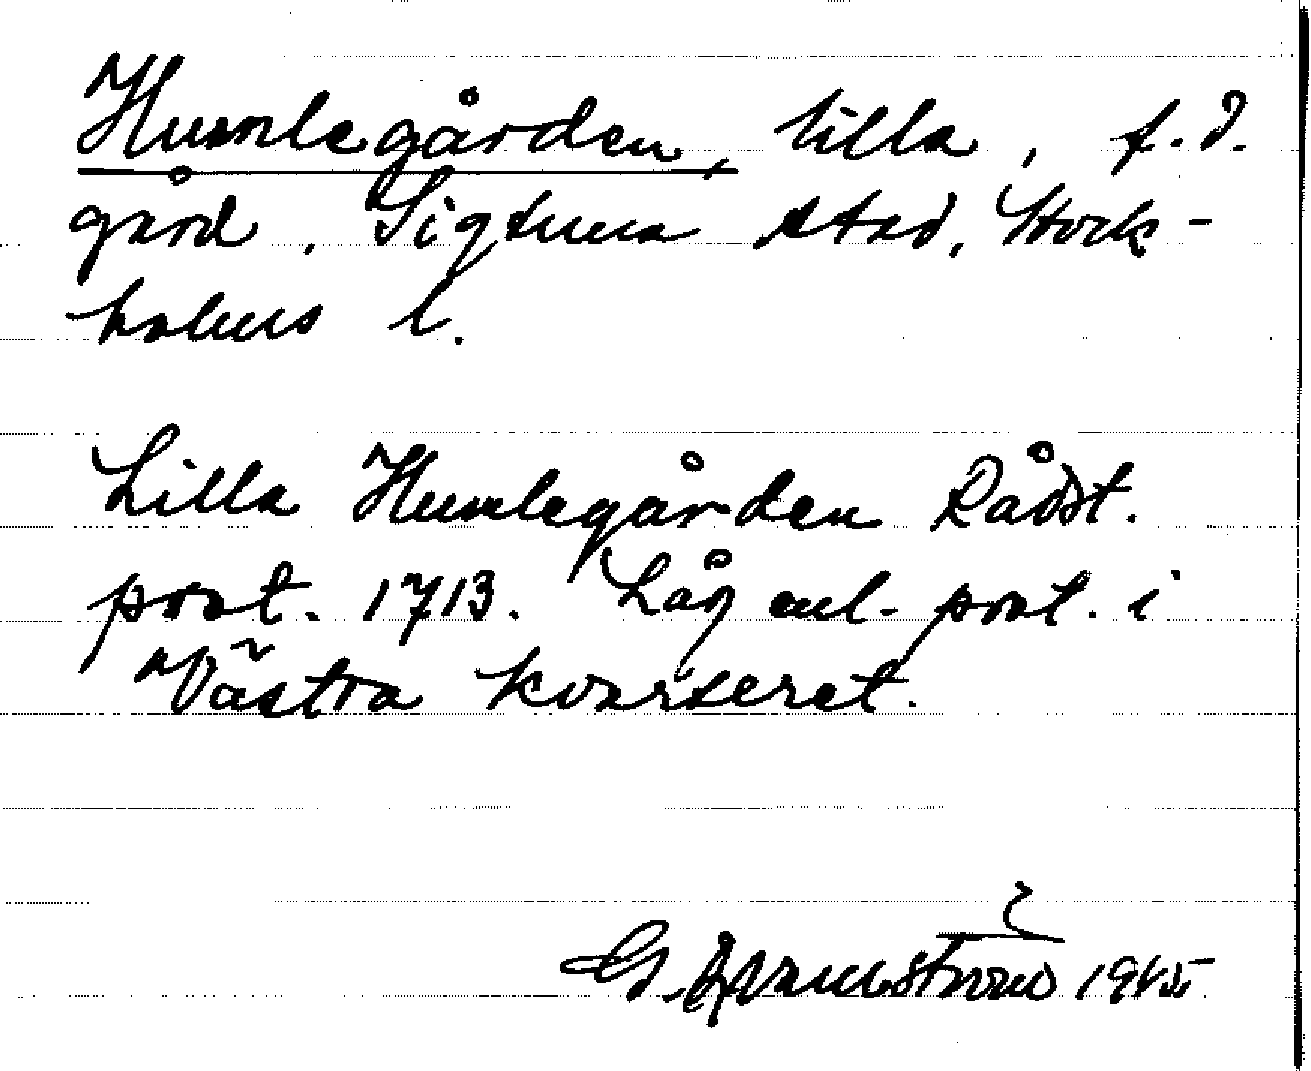 Humlegården, lilla, f.d.
gård, Sigtuna stad, Stock-
holms l.
Lilla Humlegården Rådst.
prot. 1713. Låg enl. prot. i
Västra kvarteret.
G. 1945